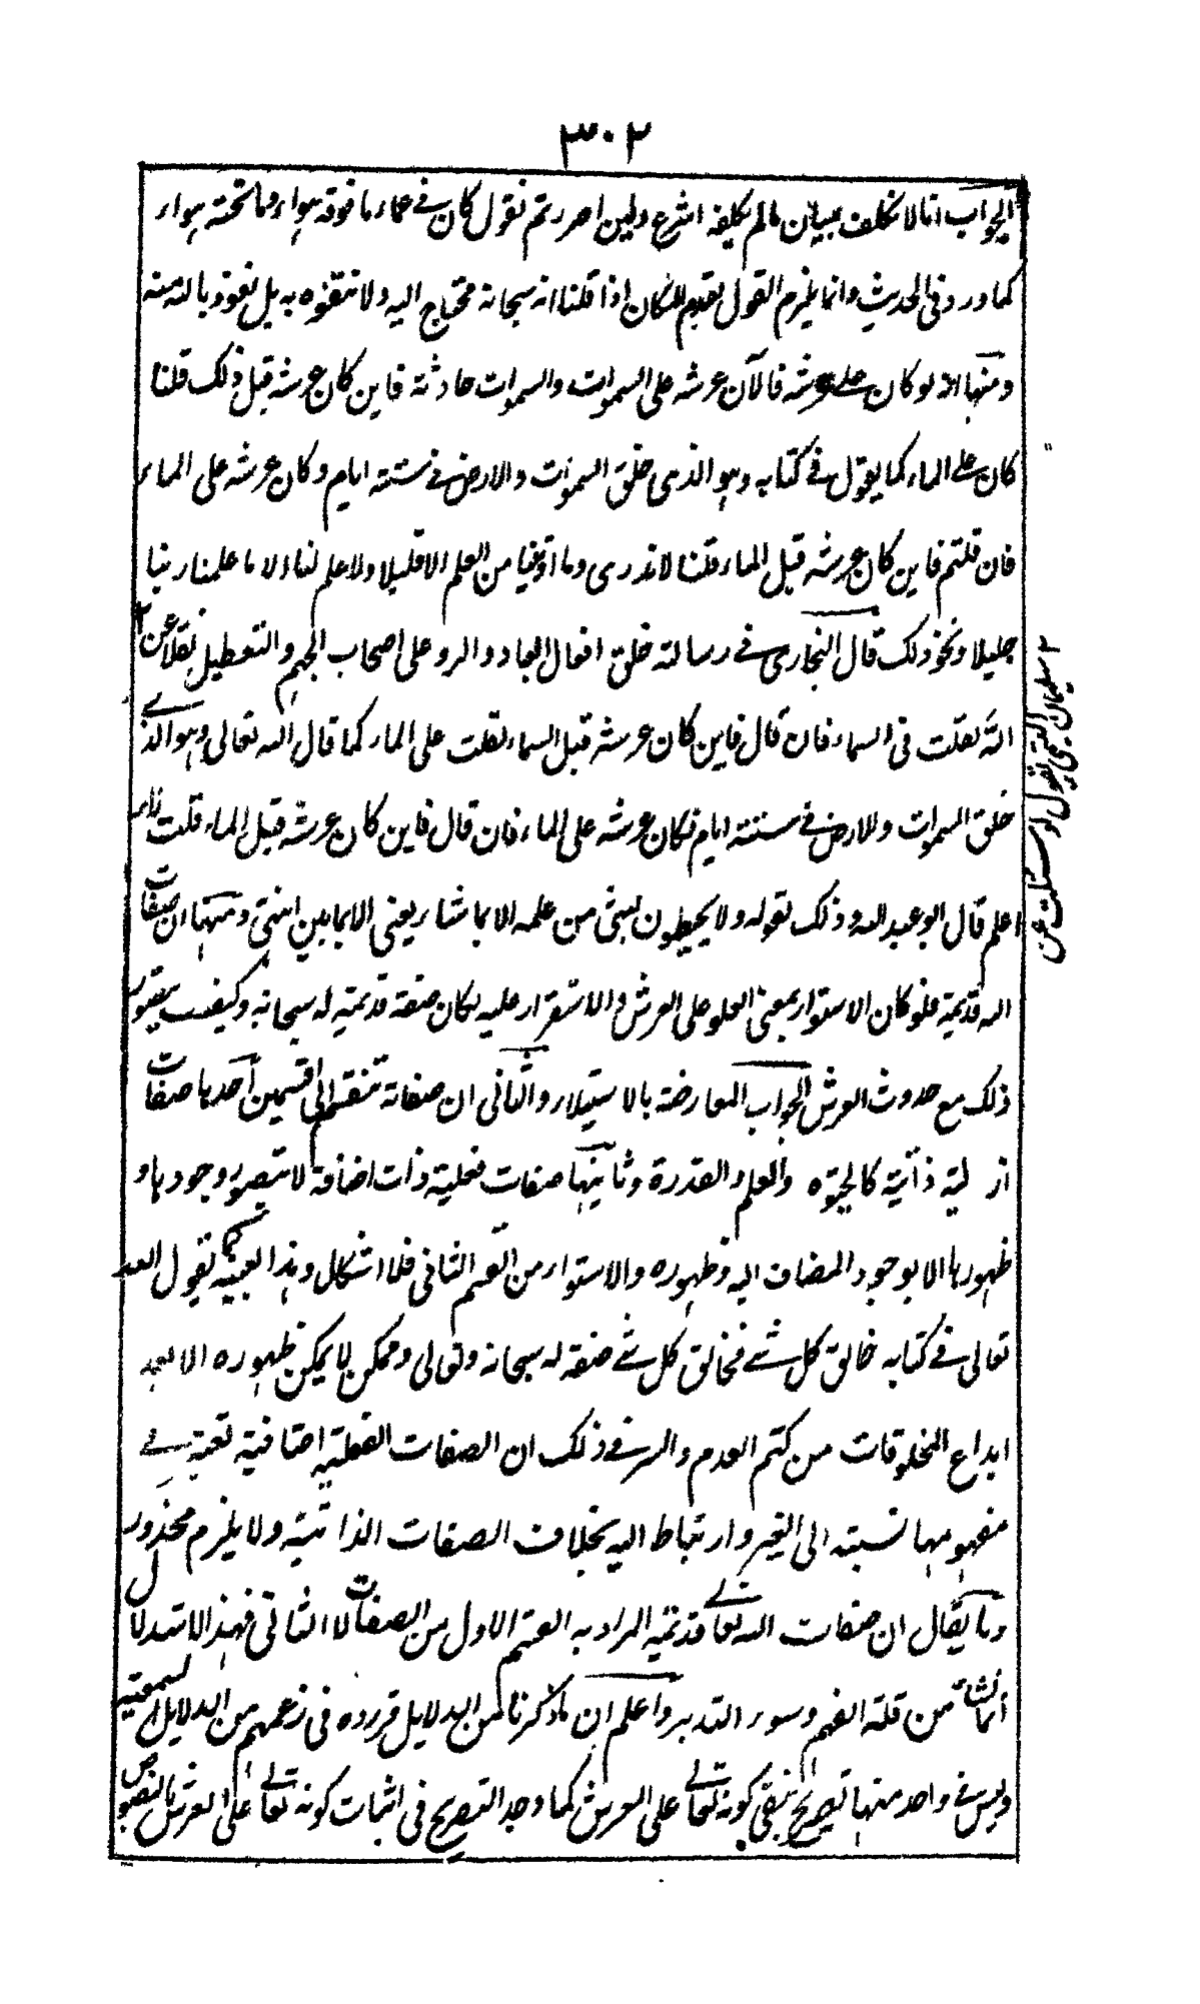 ٣٠٢
الجواب انا لا نكلف ببيان مالم يكلفه الشرع ولين اصررتم نقول كان فى عماء ما فوقه هواء وما تحته هواء
كما ورد فى الحديث وانما يلزم القول بقدم المكان اذا قلنا انه سبحانه محتاج اليه ولا نتفوه به بل نعوذ بالله منه
ومنها انه لو كان على عرشه فالآن عرشه على السموات والسموات حادثة فاين كان عرشه قبل ذلك قلنا
كان على الماء كما يقول فى كتابه وهو الذى خلق السموات والارض فى ستة ايام وكان عرشه على الماء
فان قلتم فاين كان عرشه قبل الماء قلنا لا ندرى وما اوتينا من العلم الا قليلا ولا علم لنا الا ما علمنا ربنا
جليلا ونحو ذلك قال البخارى فى رسالته خلق افعال العباد والرد على اصحاب الجهم والتعطيل نقلا عن ٢
انه لقلت فى السماء فان قال فاين كان عرشه قبل السماء لقلت على الماء كما قال الله تعالى وهو الذے
خلق السموات والارض فى ستة ايام فكان عرشه على الماء فان قال فاين كان عرشه قبل الماء قلت لا
اعلم قال ابو عبد الله وذلك لقوله ولا يحيطون بشئ من علمه الا بما شاء يعنى الا بما بين انتهى ومنها ان صفات
الله قديمة فلو كان الاستواء بمعنى العلو على العرش والاستقرار عليه لكان صفة قديمة له سبحانه وكيف يتصور
ذلك مع حدوث العرش الجواب المعارضة بالاستيلاء والثانى ان صفاته تنقسم الى قسمين احدها صفات
ازلية ذاتية كالحيوة والعلم والقدرة وثانيها صفات فعلية ذات اضافة لا يتصور وجودها و
ظهورها الا بوجود المضاف اليه وظهوره والاستواء من القسم الثانى فلا اشكال وهذا بعينه كما يقول الله
تعالى فى كتابه خالق كل شے فخالق كل شے صفة له سبحانه وتعالى وممكن لا يمكن ظهوره الا بعد
ابداع المخلوقات من كتم العدم والسر فى ذلك ان الصفات الفعلية اضافية تعتبر فے
مفهومها نسبته الى الغير وارتباط اليه بخلاف الصفات الذاتية ولا يلزم محذور
وما يقال ان صفات الله تعالے قديمة المراد به القسم الاول من الصفات لا الثانى فهذا الاستدلال
انما نشاء من قلة الفهم وسوء التدبر واعلم ان ما ذكرنا من الدلايل قرروه فى زعمهم من الدلايل السمعية
وليس فى واحد منها تصريح بنفى كونه تعالے على العرش كما وجد التصريح فى اثبات كونه تعالے على العرش بالنصوص
٢ سليمان التيمى يقول لو سئلت عن